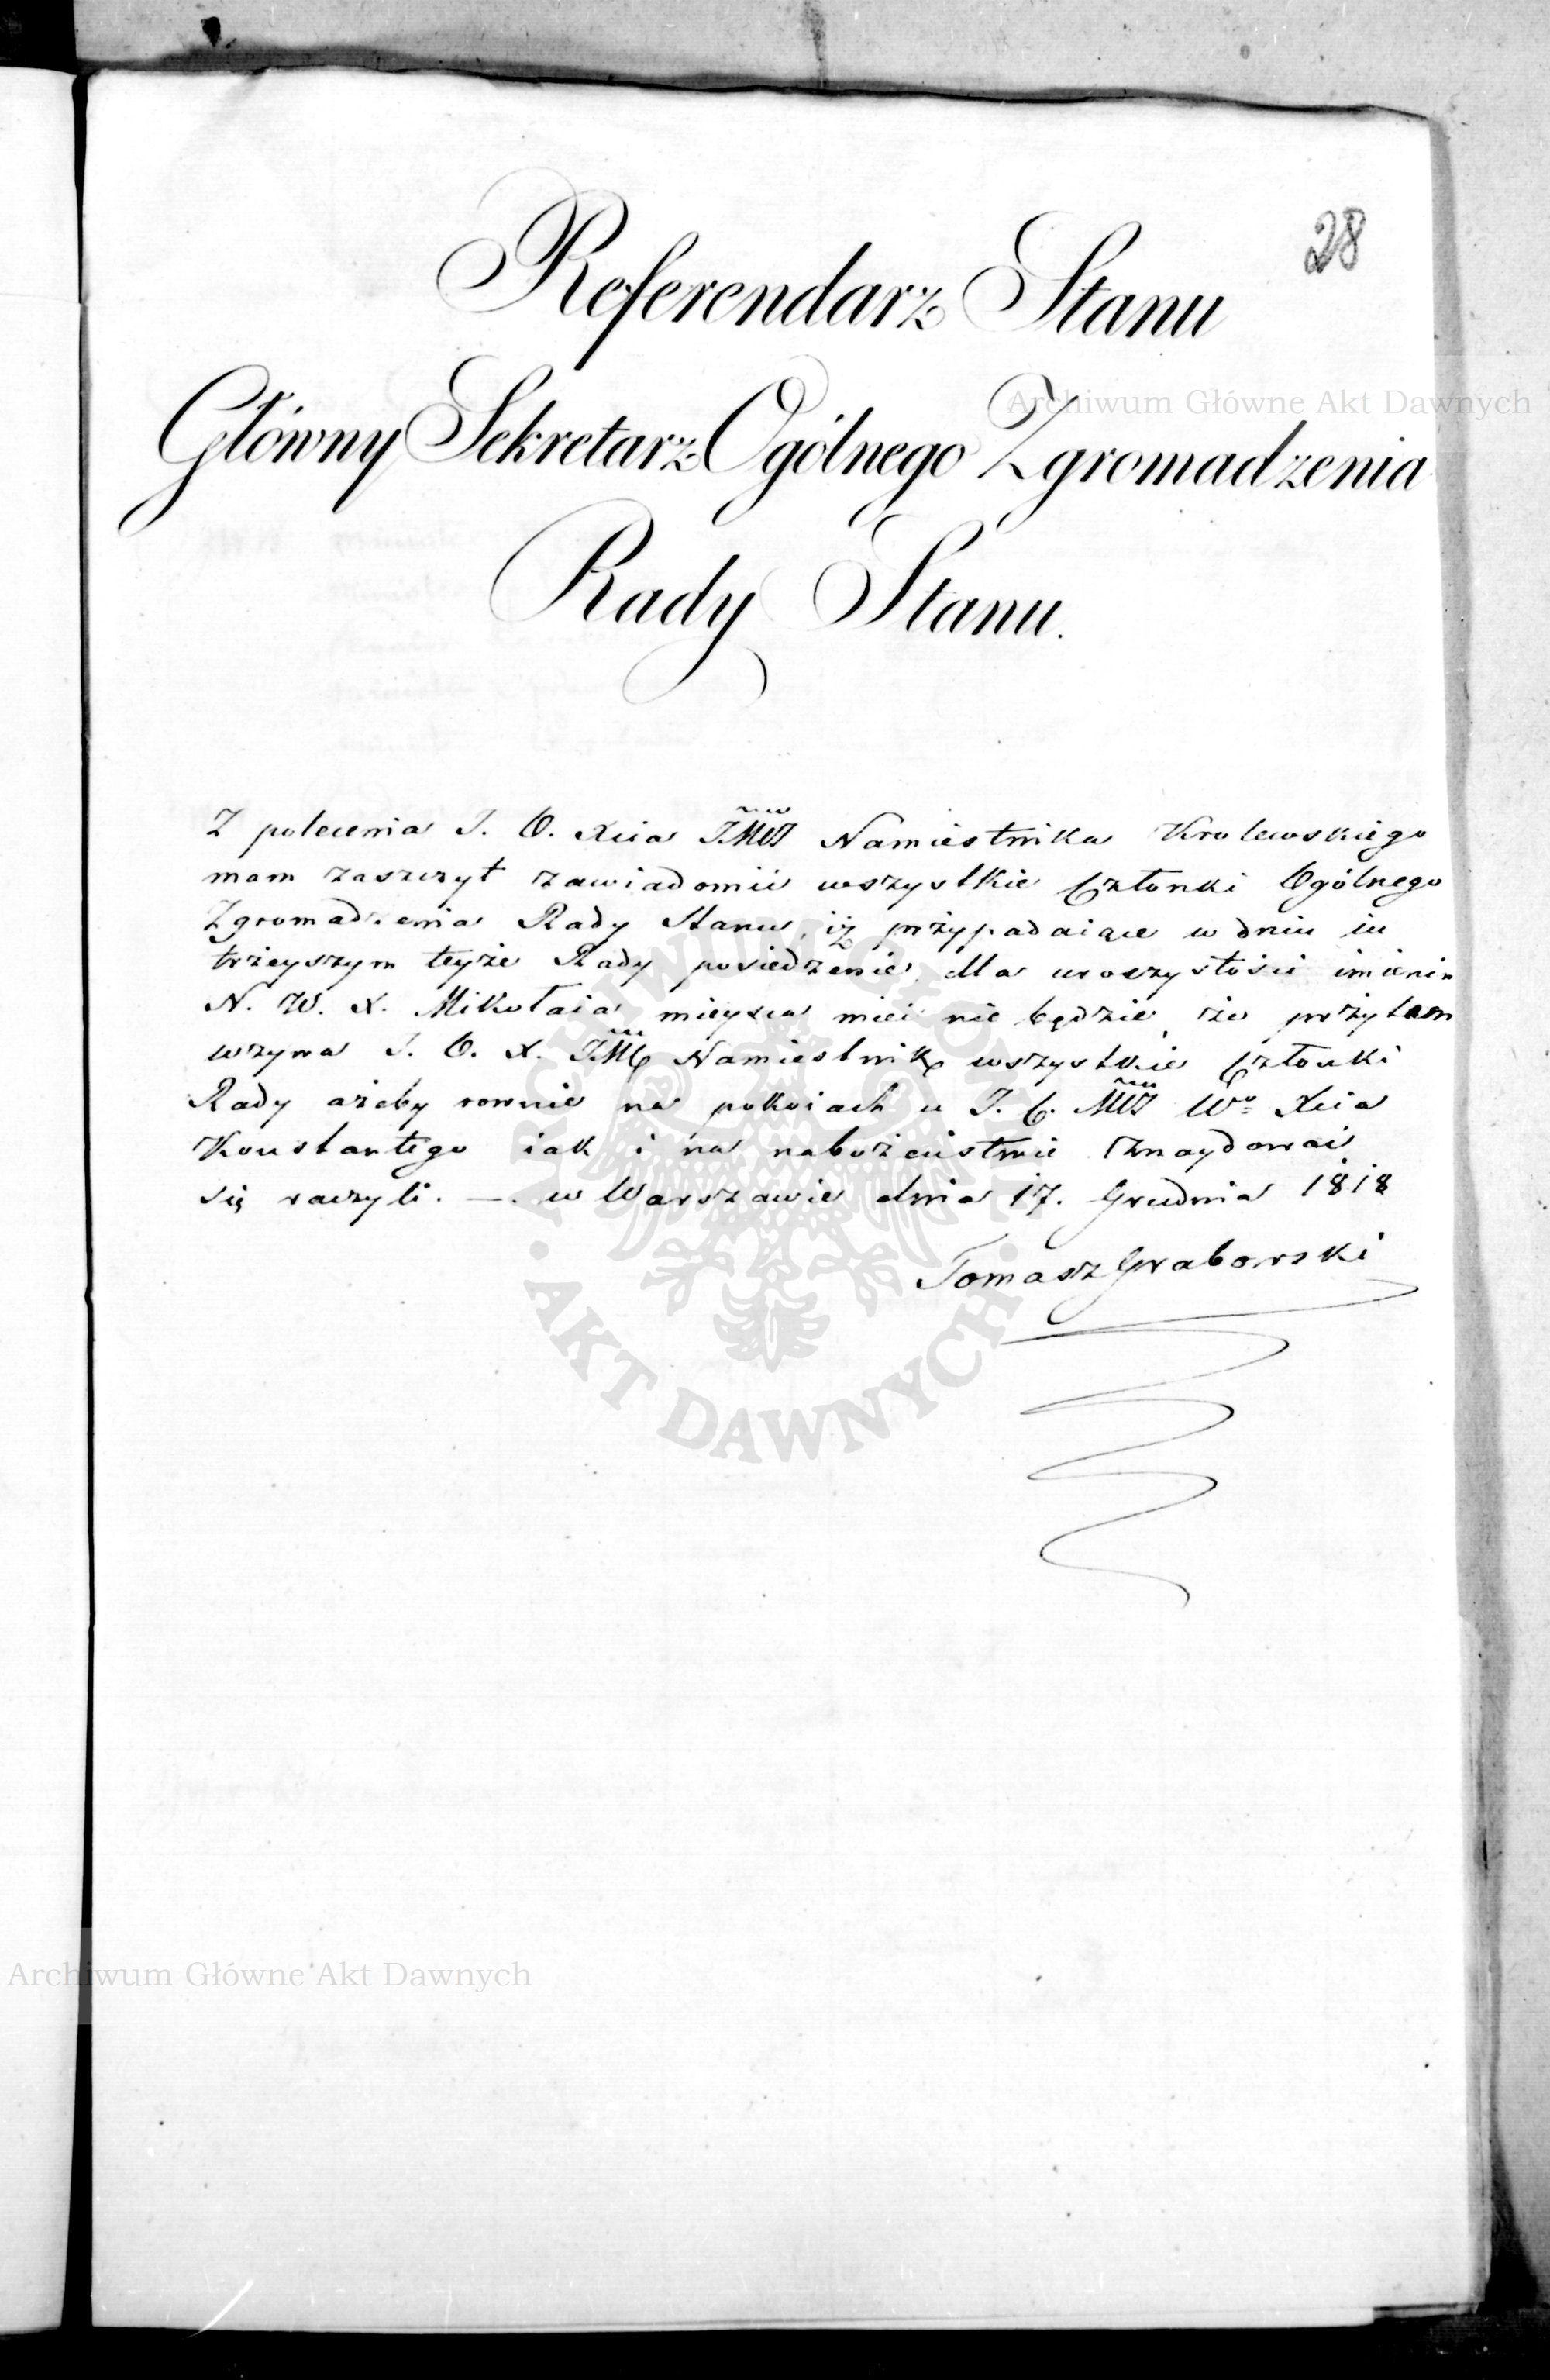 28
Referendarz Stanu
Główny Sekretarz Ogólnego Zgromadzenia
Rady Stanu.
Z polecenia J. O. Xcia JMCI Namiestnika Krolewskiego
mam zaszczyt zawiadomić wszystkie Członki Ogólnego
Zgromadzenia Rady Stanu, iż przypadaiące w dniu iu
trzeyszym teyże Rady posiedzenie, dla uroczystości imienin
N. W. X. Mikołaia mieysca mieć nie będzie, że przytem
wzywa J. O. X. JMC Namiestnik wszystkie Członki
Rady ażeby rownie na pokoiach u J. C. MCI Wo Xcia
Konstantego iak i na nabożeństwie znaydować
się raczyli. — w Warszawie dnia 17. Grudnia 1818
Tomasz Grabowski
Archiwum Główne Akt Dawnych
ARCHIWUM GŁÓWNE AKT DAWNYCH
Archiwum Główne Akt Dawnych